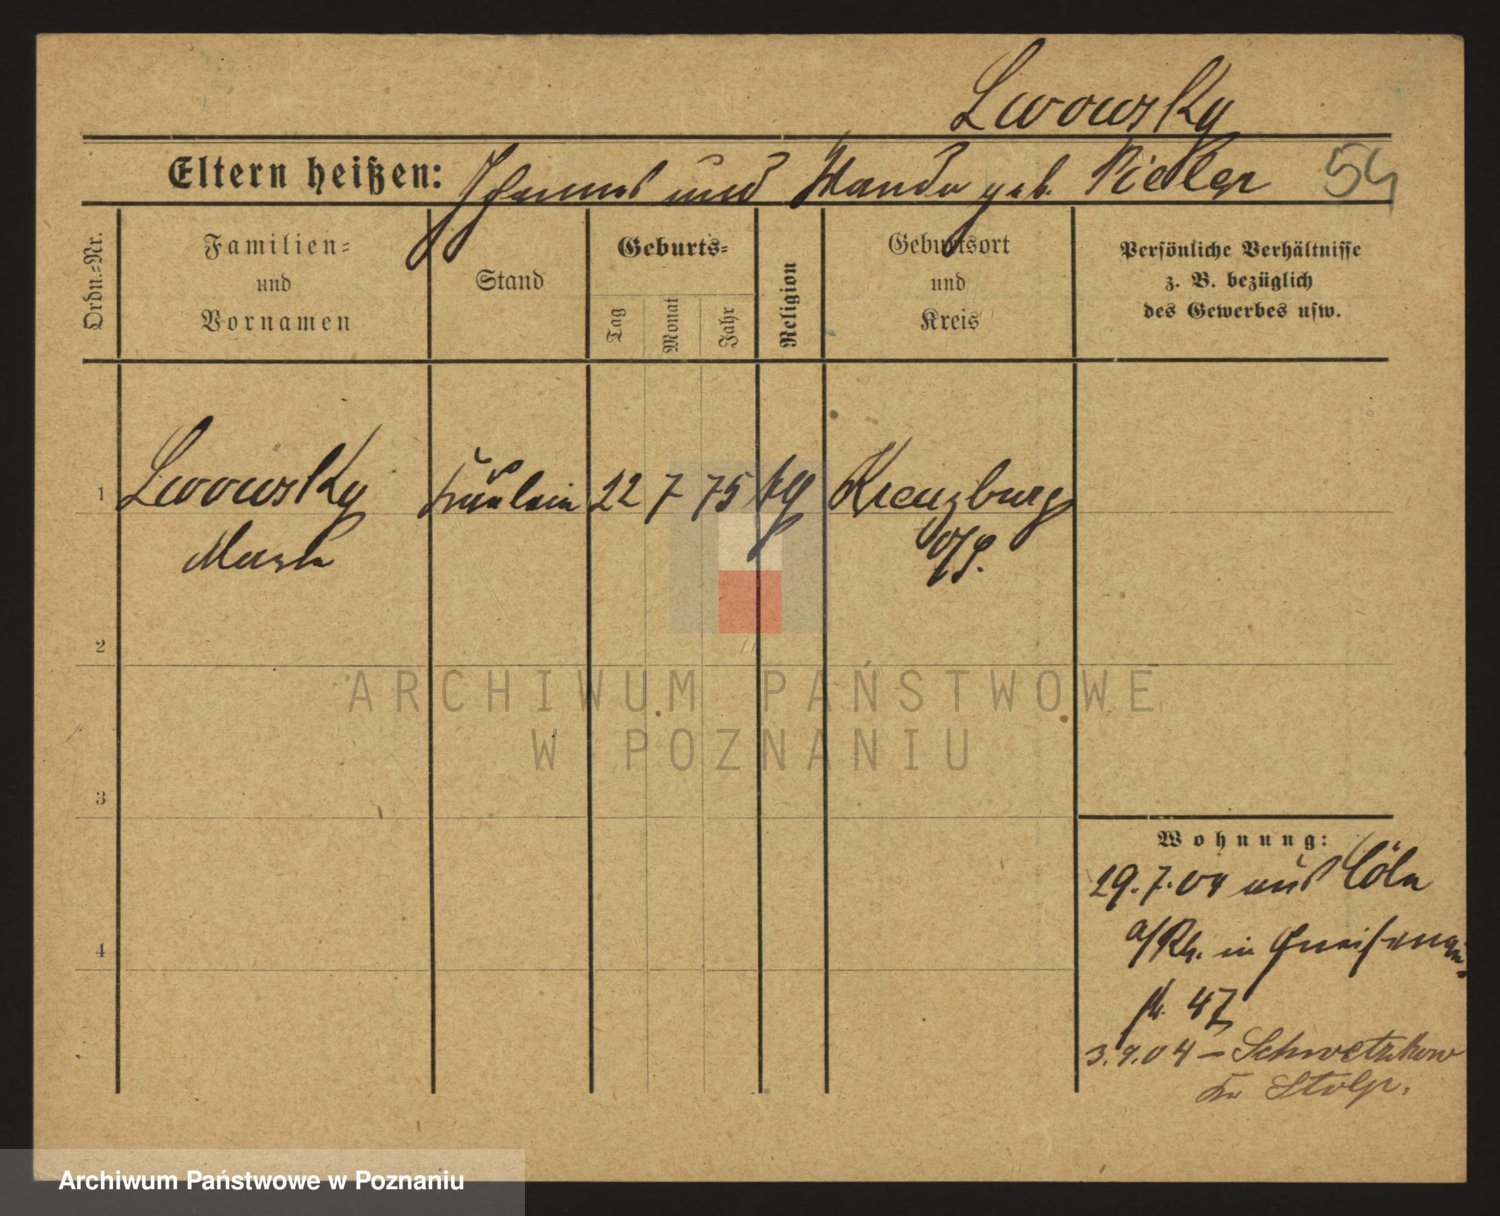 Lwowsky
Eltern heißen: Johannes und Wanda geb. Piedler 54
Ordn.=Nr.
Familien=
und
Vornamen
Stand
Geburts=
Tag
Monat
Jahr
Religion
Geburtsort
und
Kreis
Persönliche Verhältnisse
z. B. bezüglich
des Gewerbes usw.
1 Lwowsky Fräulein 22 7 75 Kreuzburg
O/S.
2
3
4
Wohnung:
29.7.04 aus Cöln
a/Rh. in Gneisenau
str. 47
3.9.04 – Schwetzkow
Kr Stolp.
ARCHIWUM PAŃSTWOWE
W POZNANIU
Archiwum Państwowe w Poznaniu